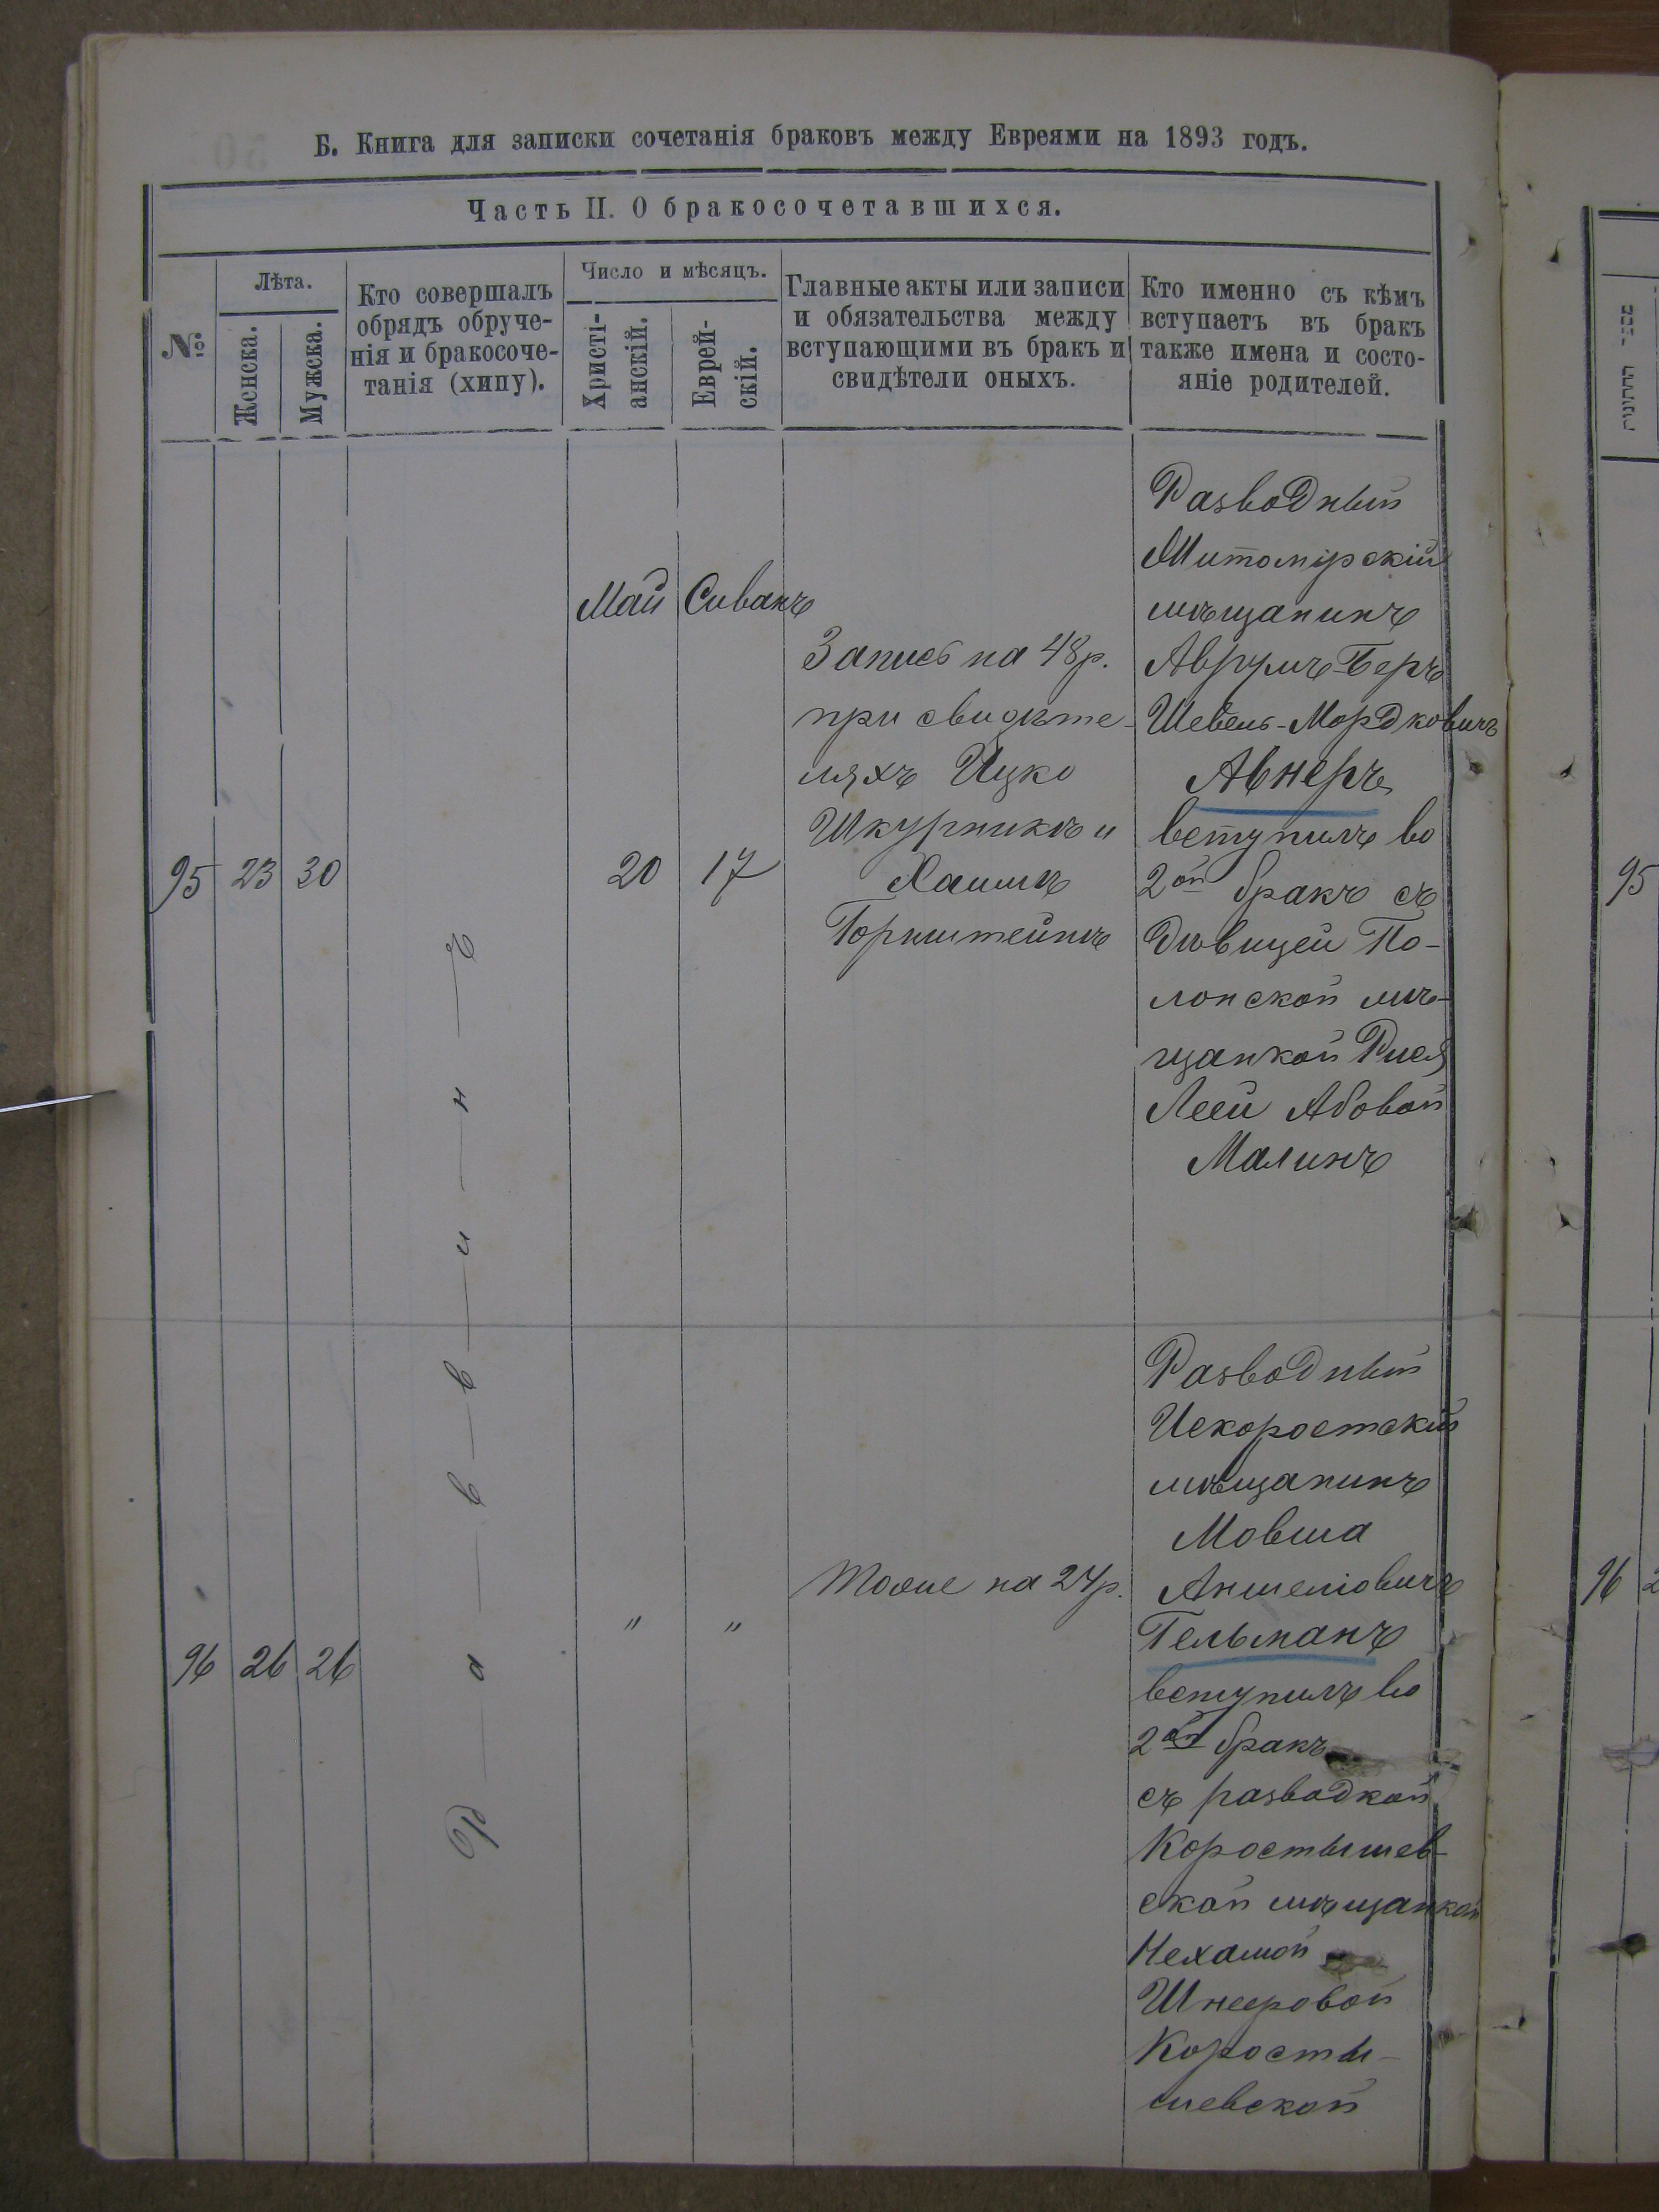 Б. Книга для записки сочетанія браковъ между Евреями на 1893 годъ.
Часть II. О бракосочетавшихся.
№
Лѣта.
Женска.
Мужска.
Кто совершалъ
обрядъ обруче-
нія и бракосоче-
танія (хипу).
Число и мѣсяцъ.
Христі-
анскій.
Еврей-
скій.
Главные акты или записи
и обязательства между
вступающими въ бракъ и
свидѣтели оныхъ.
Кто именно съ кѣмъ
вступаетъ въ бракъ
также имена и состо-
яніе родителей.
95
23
30
Май
20
Сиванъ
17
Запись на 48 р.
при свидѣте-
ляхъ Ицко
Шкурникъ и
Хаимъ
Горнштейнъ
Разводный
Житомірскій
мѣщанинъ
Аврумъ-Беръ
Шевель-Мордковичъ
Авнеръ
вступилъ во
2ой бракъ съ
Дѣвицей По-
лонской мѣ-
щанкой Рися
Леей Абовой
Малинъ
Раввинъ
96
26
26
"
"
Тоже на 24 р.
Разводный
Искоростскій
мѣщанинъ
Мовша
Аншеліовичъ
Гельманъ
вступилъ во
2ой бракъ
съ разводкой
Коростышев-
ской мѣщанкой
Нехамой
Шнееровой
Коросты-
шевской
95
96
2